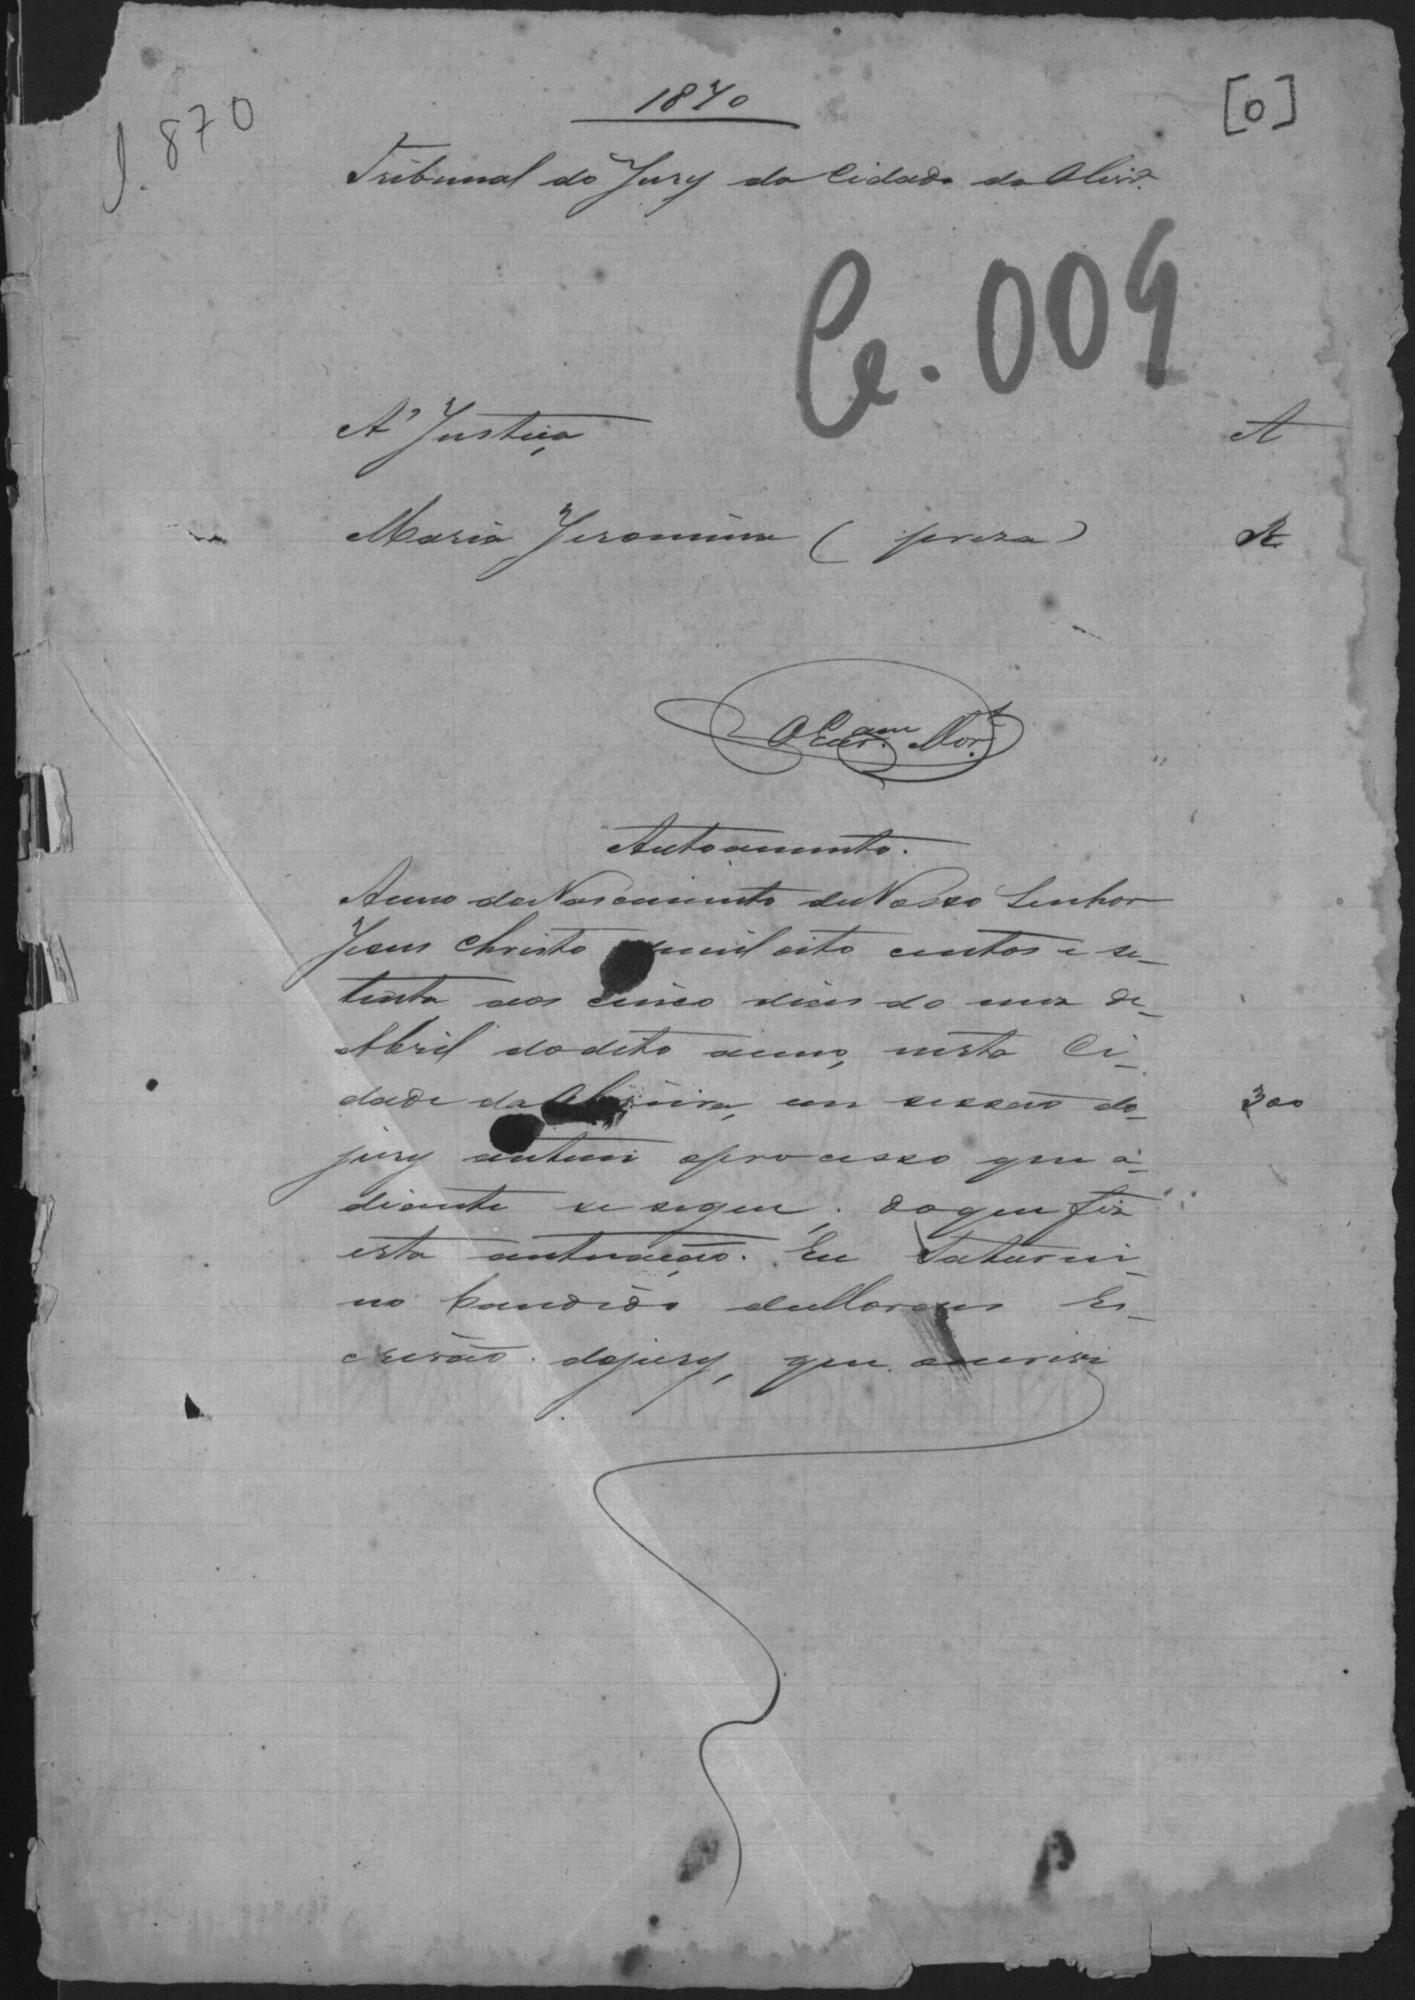 1870
[0]
1.870
Tribunal do Jury da Cidade da Olivrª
Ce. 009
A' Justiça A
Maria Jeronima (preza) R
O Escram Mor.
Autoamento.
Anno do Nascimento de Nosso Senhor
Jesus Christo mil oito centos e se-
tenta aos cinco dias do mez de
Abril do dito anno, nesta Ci-
dade da Oliveira, em sessão do 300
jury autuei o processo que a-
diante se segue; do que fiz
esta autuação. Eu Saturni-
no Candido de Moraes Es-
crivão do jury, que escrevi